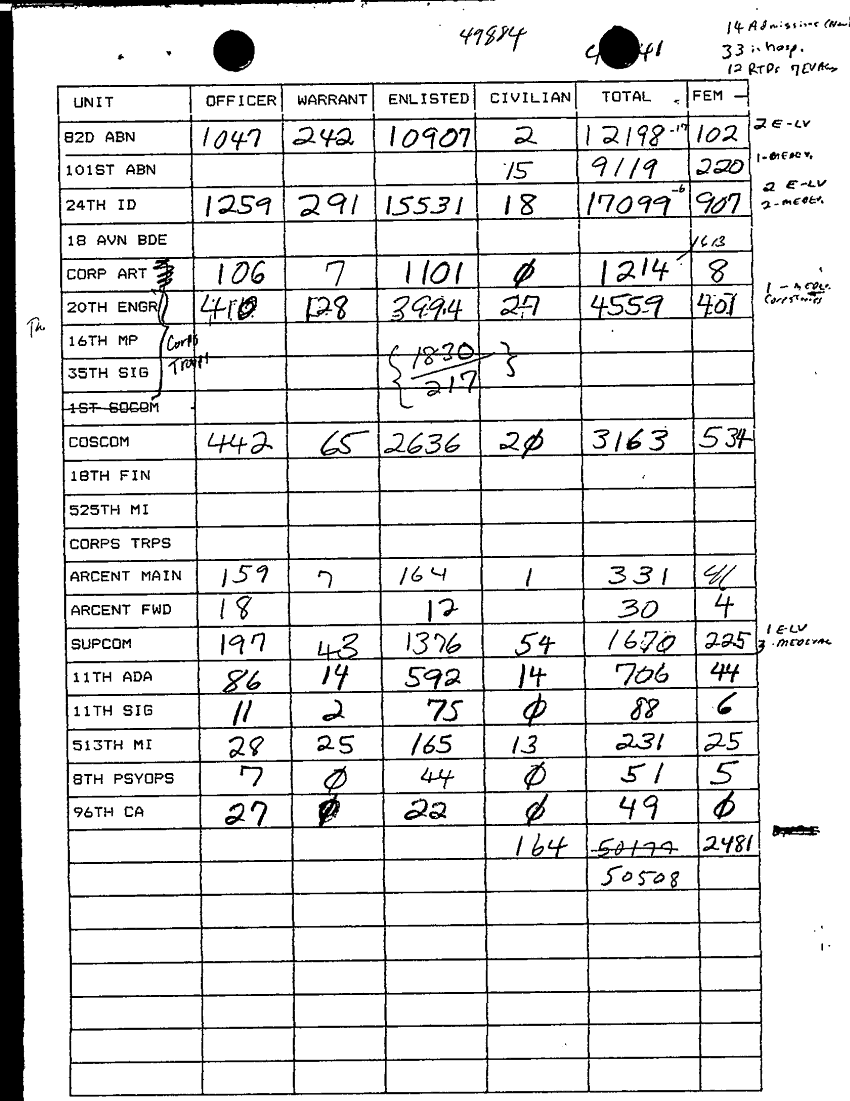 49884
14 Admissions
33 in hosp.
12 RTDs 7 EVACs
UNIT OFFICER WARRANT ENLISTED CIVILIAN TOTAL FEM
82D ABN 1047 242 10907 2 12198 -17 102 2 E-LV
101ST ABN 15 9119 220 1-MEDEV.
24TH ID 1259 291 15531 18 17099 -6 907 2 E-LV
2-MEDEV.
18 AVN BDE 1613
CORP ART 106 7 1101 Ø 1214 8
20TH ENGR 410 128 3994 27 4559 401 1-MEDEV
16TH MP Corps 1830
35TH SIG Troops 217
1ST SOCOM
COSCOM 442 65 2636 2Ø 3163 534
18TH FIN
525TH MI
CORPS TRPS
ARCENT MAIN 159 7 164 1 331
ARCENT FWD 18 12 30 4
SUPCOM 197 43 1376 54 1670 225 1 E-LV
3-MEDEVAC
11TH ADA 86 14 592 14 706 44
11TH SIG 11 2 75 Ø 88 6
513TH MI 28 25 165 13 231 25
8TH PSYOPS 7 Ø 44 Ø 51 5
96TH CA 27 Ø 22 Ø 49 Ø
164 50177 2481
50508